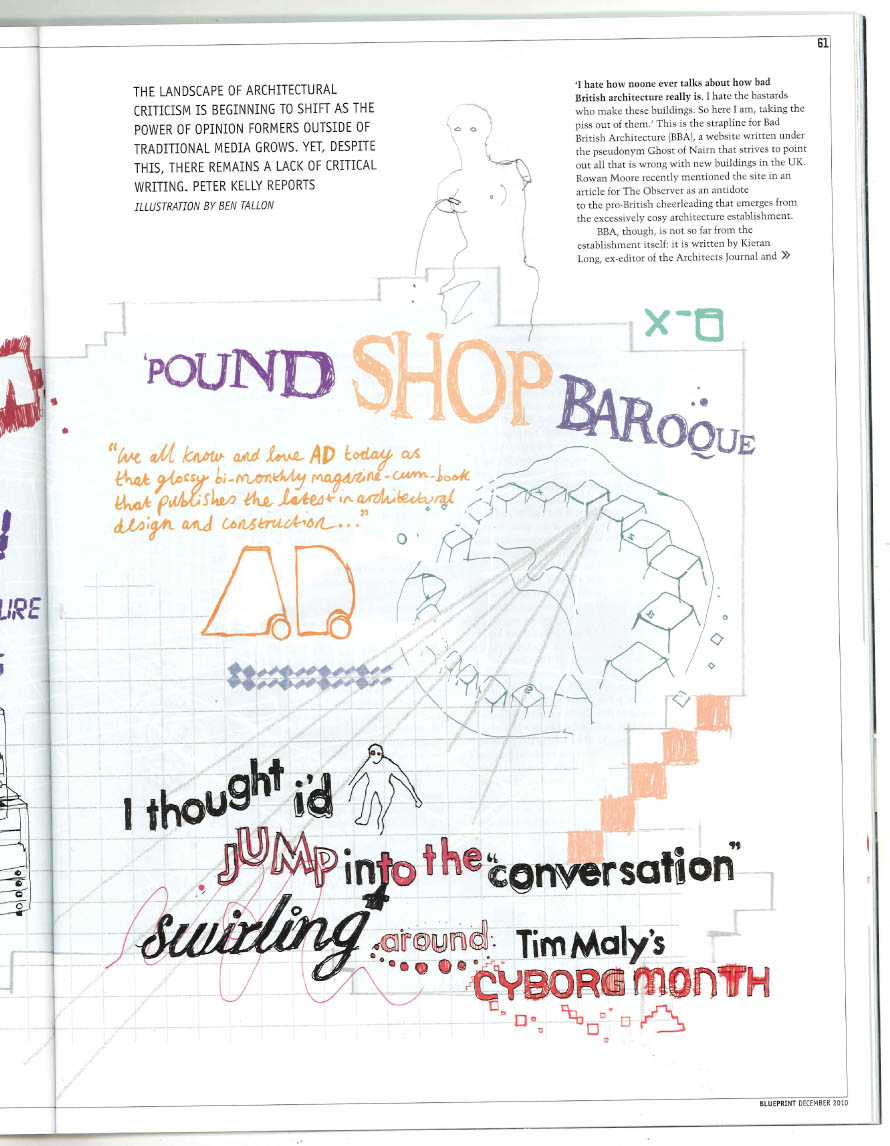 61
THE LANDSCAPE OF ARCHITECTURAL
CRITICISM IS BEGINNING TO SHIFT AS THE
POWER OF OPINION FORMERS OUTSIDE OF
TRADITIONAL MEDIA GROWS. YET, DESPITE
THIS, THERE REMAINS A LACK OF CRITICAL
WRITING. PETER KELLY REPORTS
ILLUSTRATION BY BEN TALLON
'I hate how noone ever talks about how bad
British architecture really is. I hate the bastards
who make these buildings. So here I am, taking the
piss out of them.' This is the strapline for Bad
British Architecture (BBA), a website written under
the pseudonym Ghost of Nairn that strives to point
out all that is wrong with new buildings in the UK.
Rowan Moore recently mentioned the site in an
article for The Observer as an antidote
to the pro-British cheerleading that emerges from
the excessively cosy architecture establishment.
BBA, though, is not so far from the
establishment itself: it is written by Kieran
Long, ex-editor of the Architects Journal and »
'POUND SHOP BAROQUE
"We all know and love AD today as
that glossy bi-monthly magazine-cum-book
that publishes the latest in architectural
design and construction..."
AD
URE
I thought i'd
JUMP into the "conversation"
swirling around
Tim Maly's
CYBORG MONTH
BLUEPRINT DECEMBER 2010